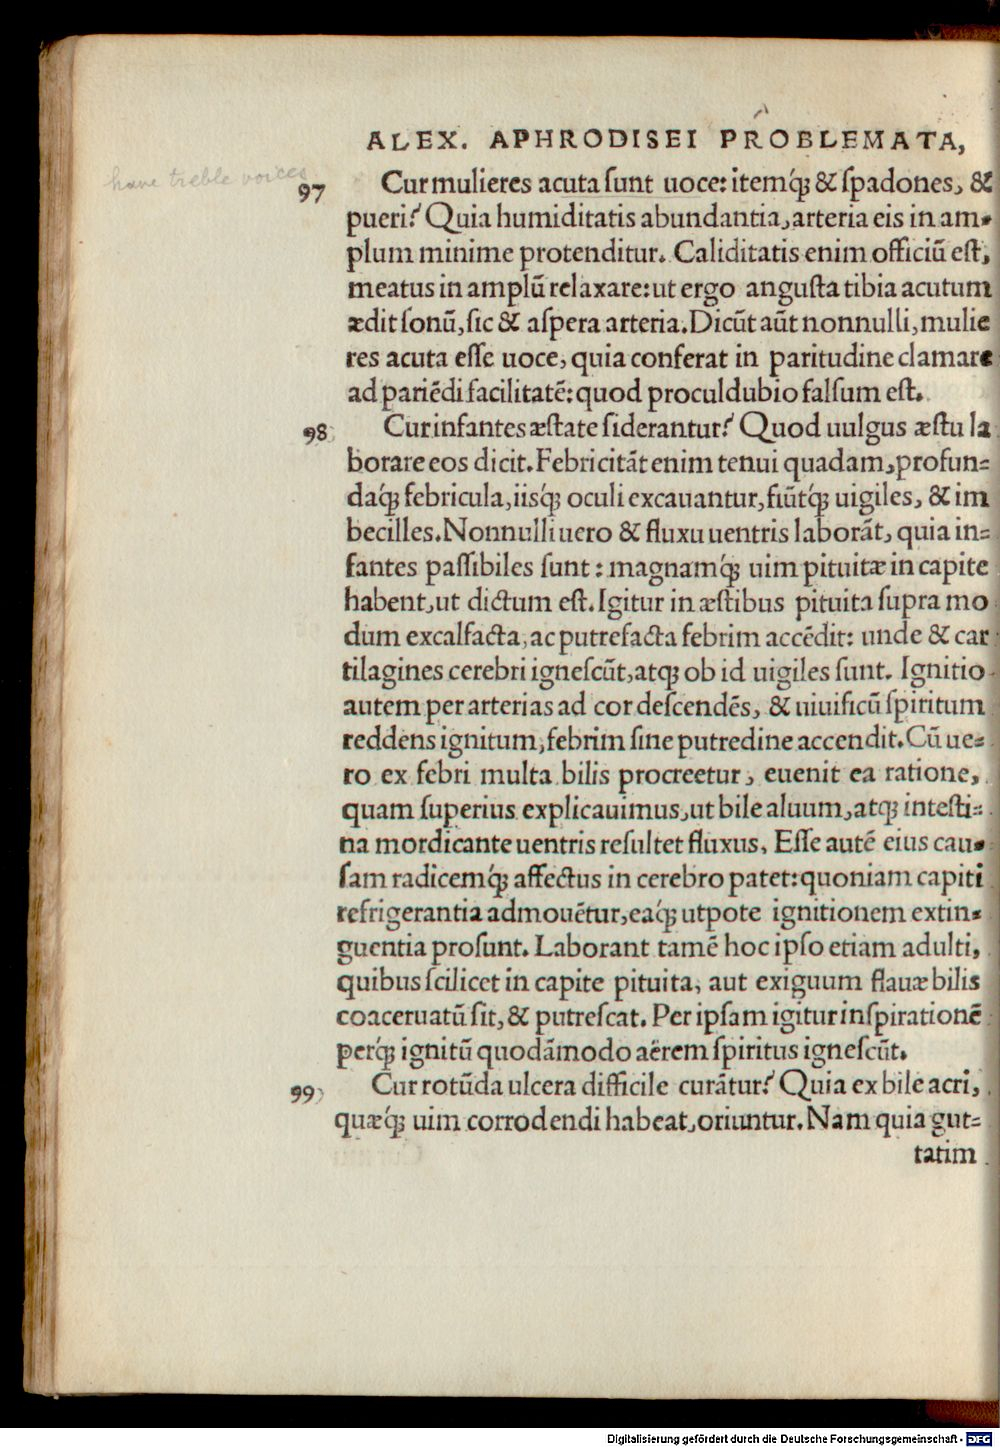 ALEX. APHRODISEI PROBLEMATA,
have treble voices
97 Cur mulieres acuta sunt uoce: itemq́ꝫ & spadones, &
pueri? Quia humiditatis abundantia, arteria eis in am-
plum minime protenditur. Caliditatis enim officiũ est,
meatus in amplũ relaxare: ut ergo angusta tibia acutum
ædit sonũ, sic & aspera arteria. Dicũt aũt nonnulli, mulie
res acuta esse uoce, quia conferat in paritudine clamare
ad pariẽdi facilitatẽ: quod proculdubio falsum est.
98 Cur infantes æstate siderantur? Quod uulgus æstu la
borare eos dicit. Febricitãt enim tenui quadam, profun-
daq́ꝫ febricula, iisq́ꝫ oculi excauantur, fiũtq́ꝫ uigiles, & im
becilles. Nonnulli uero & fluxu uentris laborãt, quia in-
fantes passibiles sunt: magnamq́ꝫ uim pituitæ in capite
habent, ut dictum est. Igitur in æstibus pituita supra mo
dum excalfacta, ac putrefacta febrim accẽdit: unde & car
tilagines cerebri ignescũt, atqꝫ ob id uigiles sunt. Ignitio
autem per arterias ad cor descendẽs, & uiuificũ spiritum
reddens ignitum, febrim sine putredine accendit. Cũ ue-
ro ex febri multa bilis procreetur, euenit ea ratione,
quam superius explicauimus, ut bile aluum, atqꝫ intesti-
na mordicante uentris resultet fluxus. Esse autẽ eius cau-
sam radicemq́ꝫ affectus in cerebro patet: quoniam capiti
refrigerantia admouẽtur, eaq́ꝫ utpote ignitionem extin-
guentia prosunt. Laborant tamẽ hoc ipso etiam adulti,
quibus scilicet in capite pituita, aut exiguum flauæ bilis
coaceruatũ sit, & putrescat. Per ipsam igitur inspirationẽ
perq́ꝫ ignitũ quodãmodo aërem spiritus ignescũt.
99 Cur rotũda ulcera difficile curãtur? Quia ex bile acri,
quæq́ꝫ uim corrodendi habeat, oriuntur. Nam quia gut-
tatim
Digitalisierung gefördert durch die Deutsche Forschungsgemeinschaft - DFG